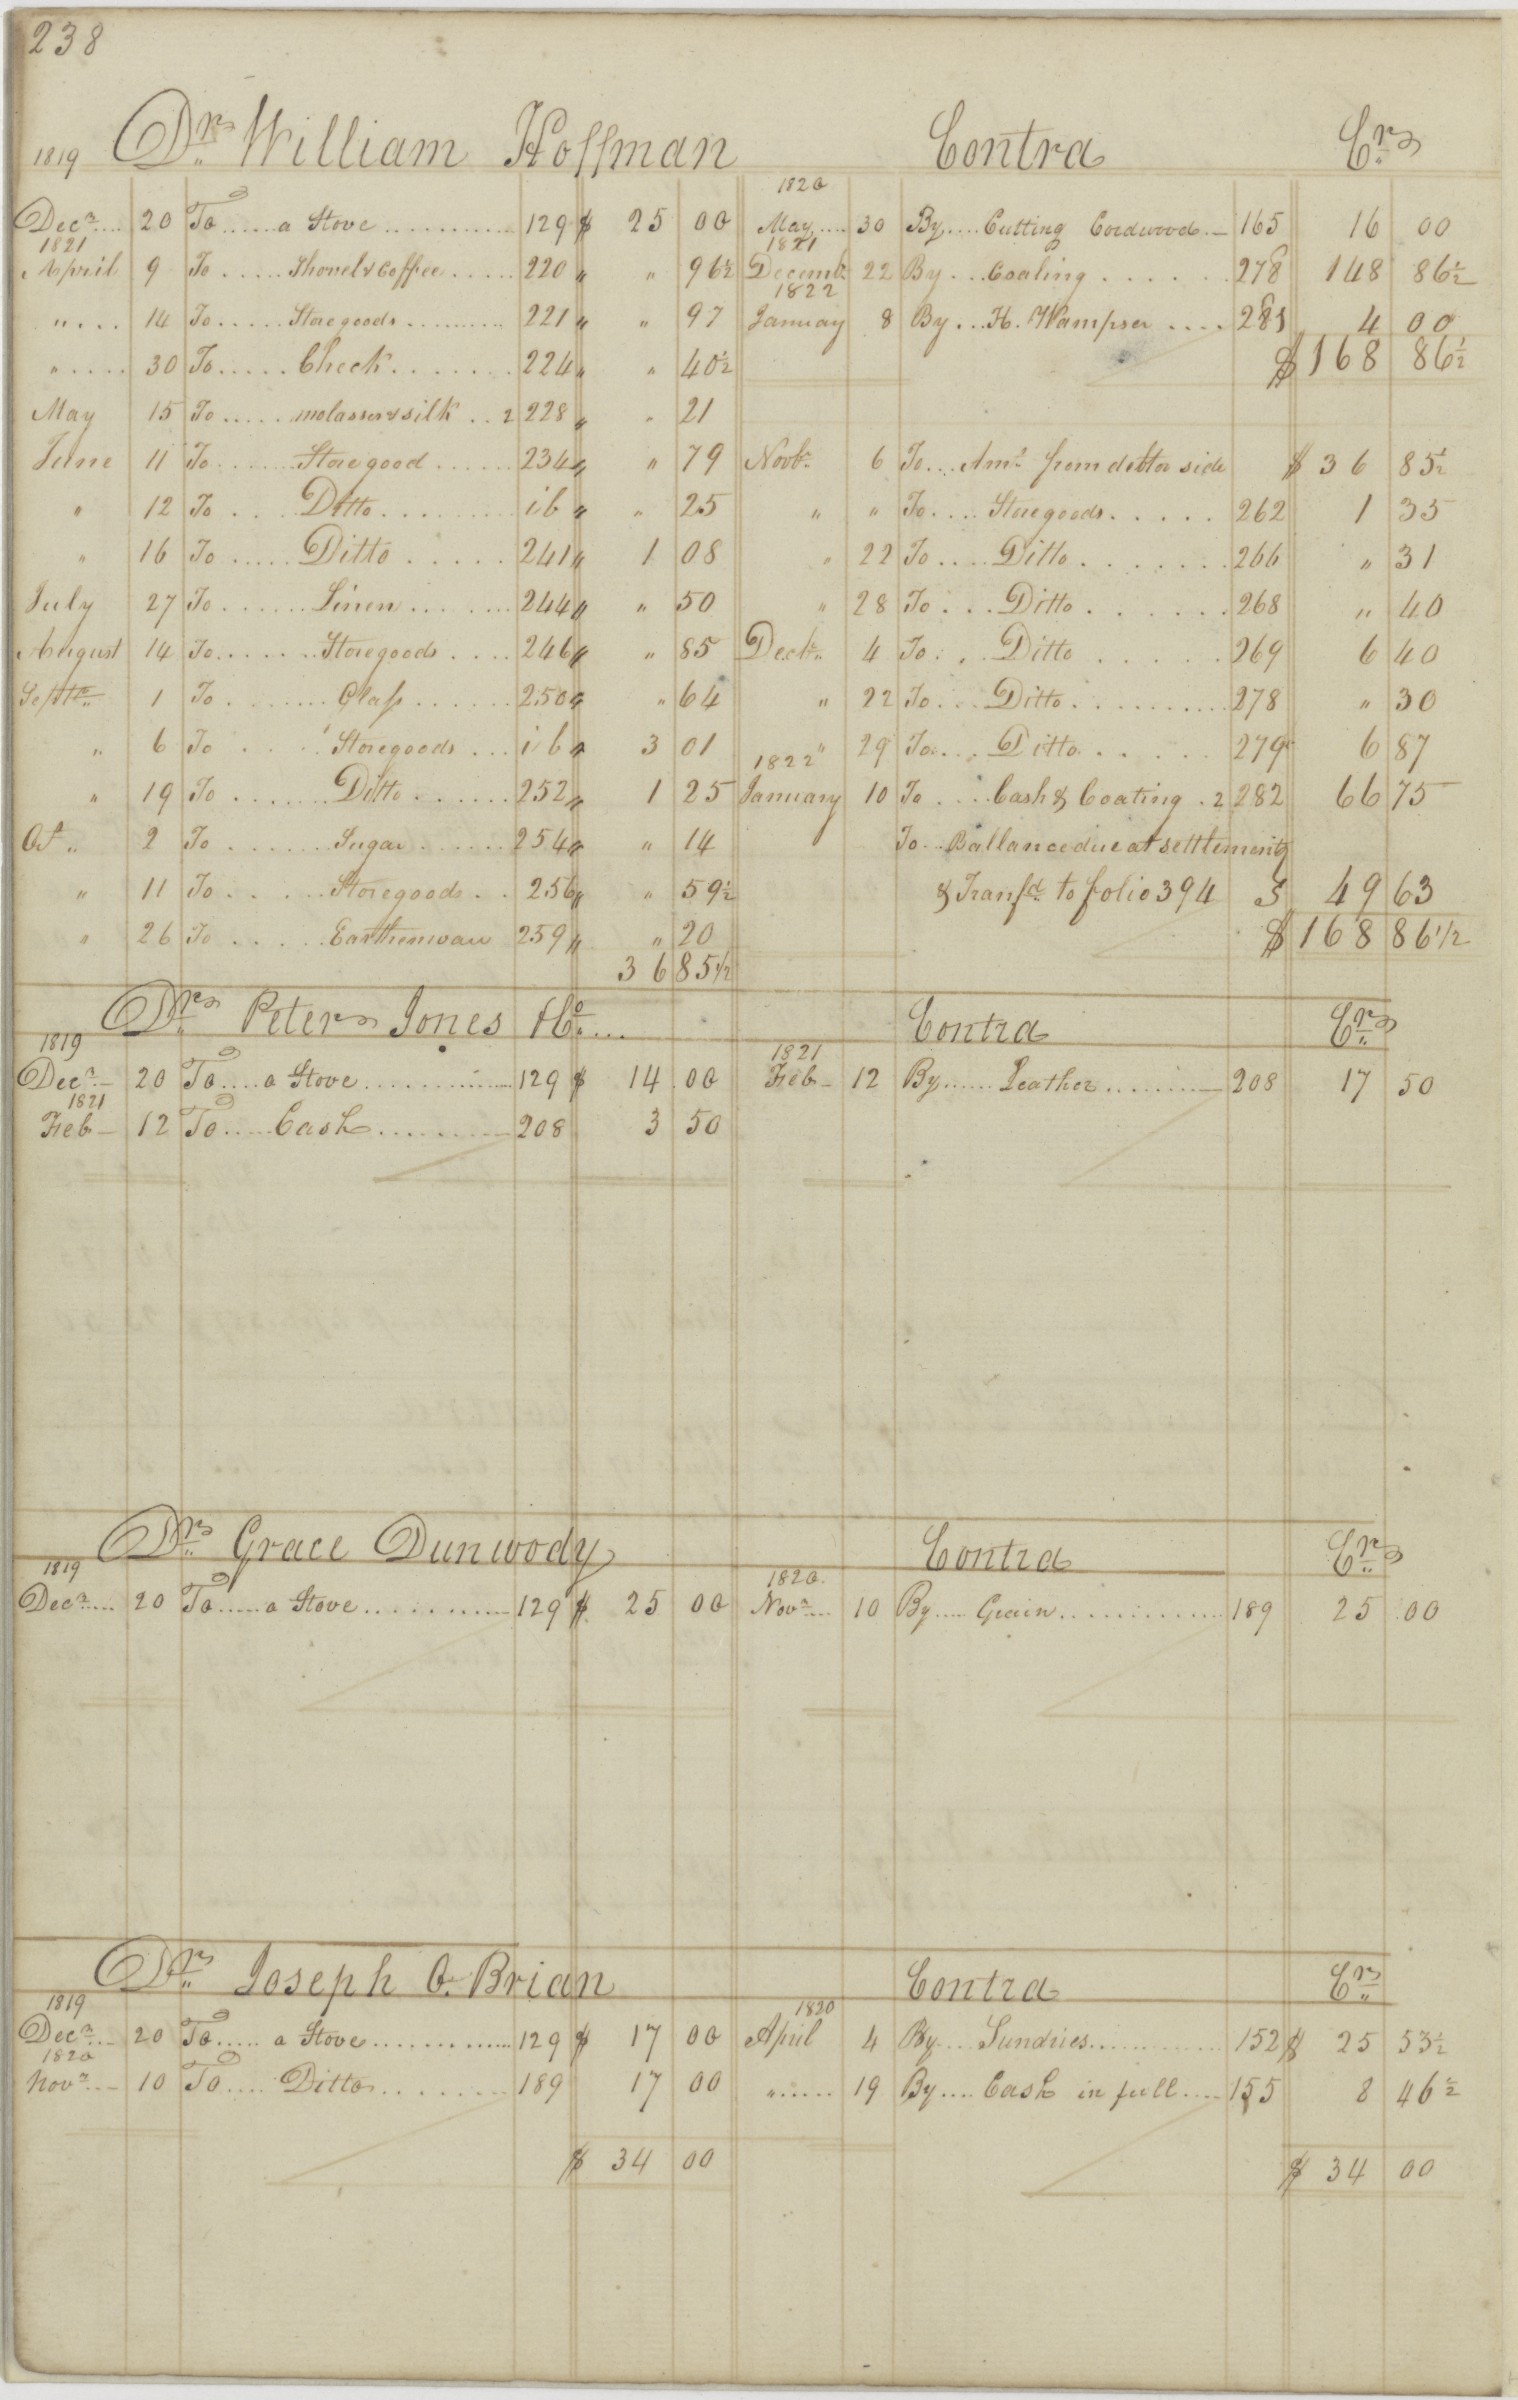 238
1819 Drs. William Hoffman Contra Crs.
Decr. 20 To a Stove 129 $ 25 00
1821
April 9 To Shovel & Coffee 220 " " 96½
" 14 To Storegoods 221 " " 97
" 30 To Check 224 " " 40½
May 15 To molasses & silk 2 228 " " 21
June 11 To Storegood 234 " " 79
" 12 To Ditto ib " " 25
" 16 To Ditto 241 " 1 08
July 27 To Linen 244 " " 50
August 14 To Storegoods 246 " " 85
Septbr. 1 To Glass 250 " " 64
" 6 To Storegoods ib " 3 01
" 19 To Ditto 252 " 1 25
Oct. 2 To Sugar 254 " " 14
" 11 To Storegoods 256 " " 59½
" 26 To Earthenware 259 " " 20
36 85½
1820
May 30 By Cutting Cordwood 165 16 00
1821
Decemb. 22 By Coaling 278 148 86½
1822
January 8 By H. Wampser 281 4 00
$ 168 86½
Novbr. 6 To Amt. from debtor side $ 36 85½
" " To Storegoods 262 1 35
" 22 To Ditto 266 " 31
" 28 To Ditto 268 " 40
Decbr. 4 To Ditto 269 6 40
" 22 To Ditto 278 " 30
" 29 To Ditto 279 6 87
1822
January 10 To Cash & Coating 2 282 66 75
To Ballance due at settlement
& Transfd. to folio 394 $ 49 63
$ 168 86 1/2
Drs. Peter Jones & Co. Contra Crs.
1819
Decr. 20 To a Stove 129 $ 14 00
1821
Feb 12 To Cash 208 3 50
1821
Feb 12 By Leather 208 17 50
Drs. Grace Dunwody Contra Crs.
1819
Decr. 20 To a Stove 129 $ 25 00
1820
Novr. 10 By Grain 189 25 00
Drs. Joseph O. Brian Contra Crs.
1819
Decr. 20 To a Stove 129 $ 17 00
1820
Novr. 10 To Ditto 189 17 00
$ 34 00
1820
April 4 By Sundries 152 $ 25 53½
" 19 By Cash in full 155 8 46½
$ 34 00